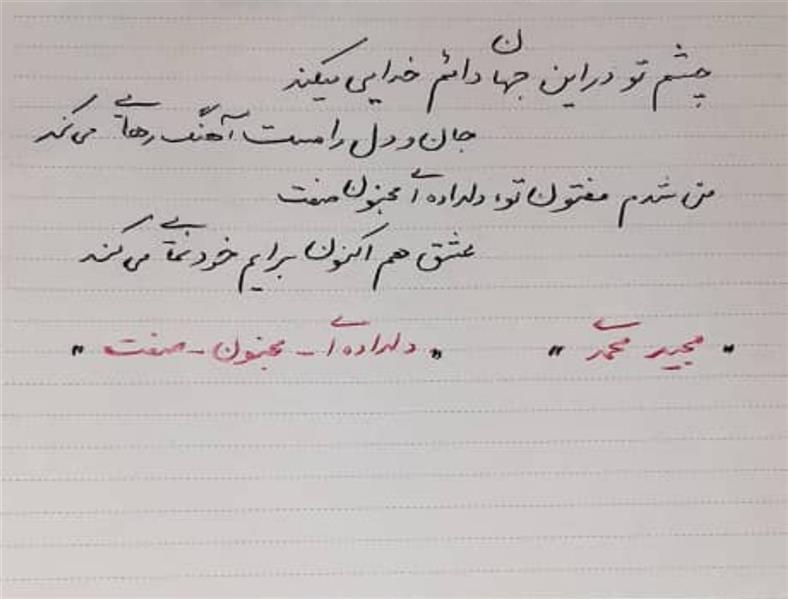 چشم تو در این جهان دائم خدایی میکند
جان و دل را مست آهنگ رهایی می‌کند
من شدم مفتون تو، دلداده‌ای مجنون صفت
عشق هم اکنون برایم خودنمایی می‌کند
"مجید محمدی" "دلداده‌ای - مجنون - صفت"